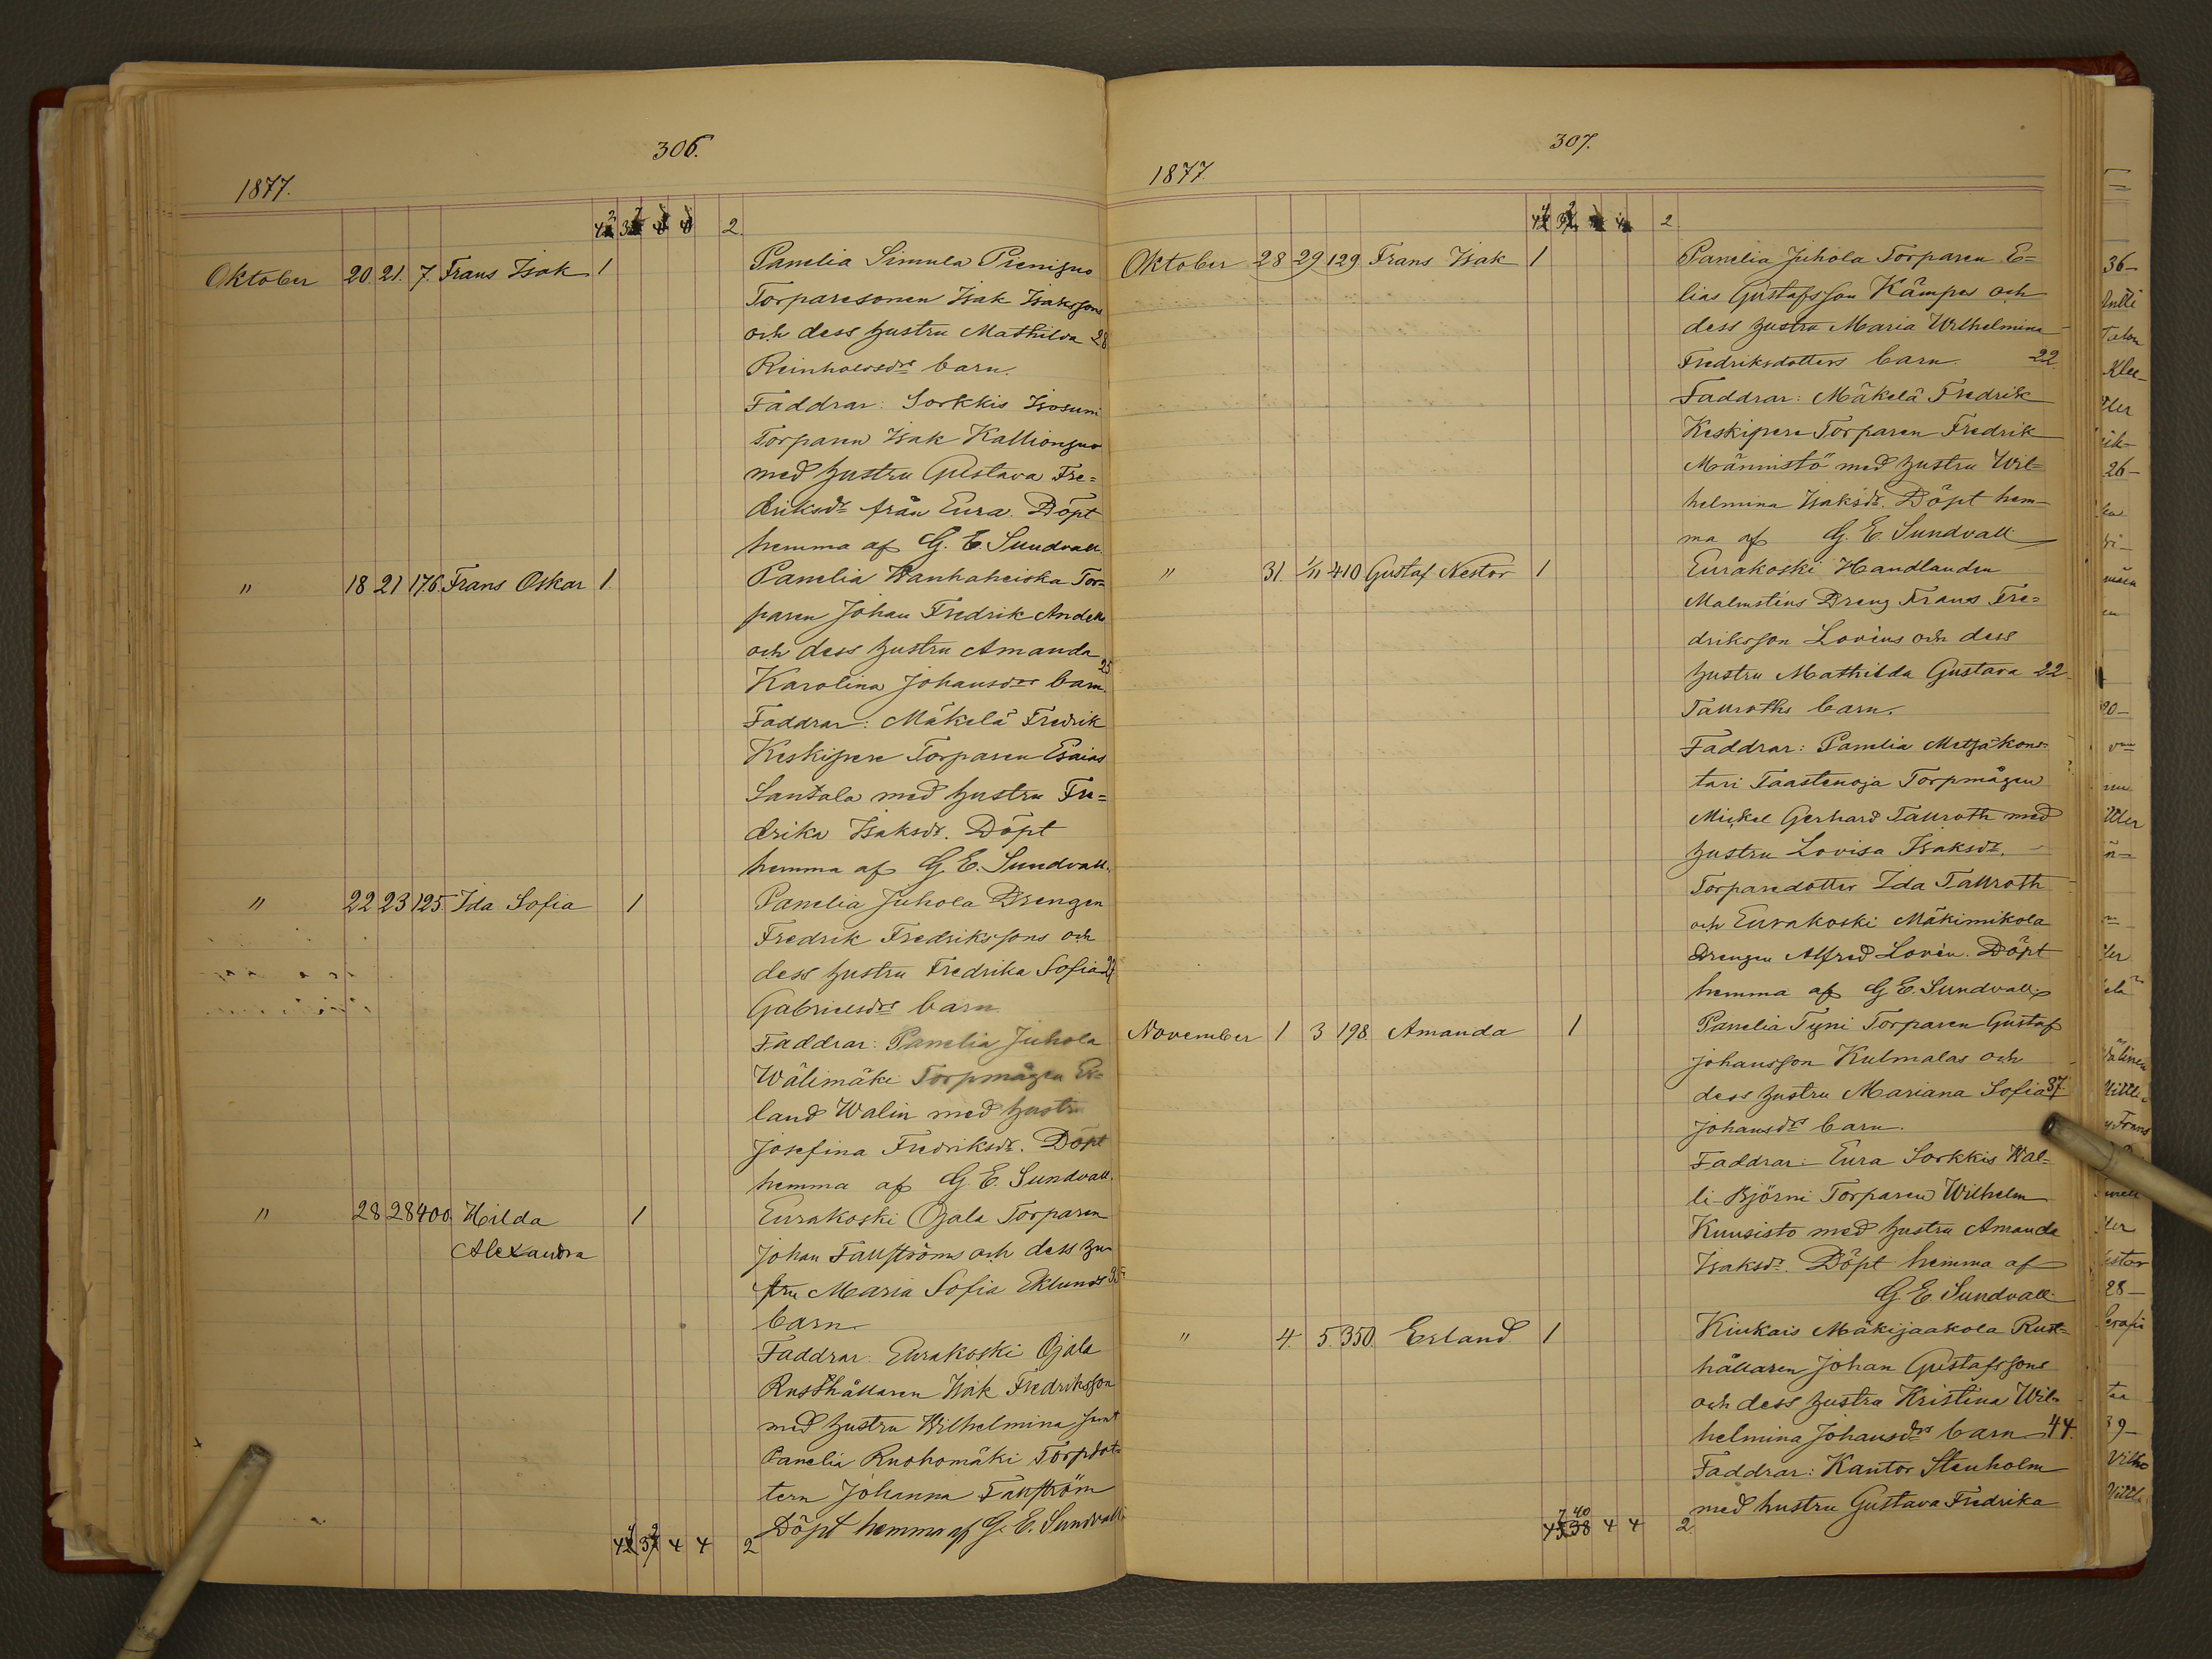 306.
1877.
2.
Oktober 20. 21. 7. Frans Isak 1
Panelia Simula Pienijuo
Torparesonen Isak Isakssons
och dess hustru Mathilda 28
Reinholdsdrs barn.
Faddrar: Sorkkis Isosuni
Torparen Isak Kallionjuo
med hustru Gustava Fre=
driksdr från Eura. Döpt
hemma af G. E. Sundvall.
" 18 21 176. Frans Oskar 1.
Panelia Wanhaheiska Tor=
paren Johan Fredrik Anders
och dess hustru Amanda 25
Karolina Johansdrs barn.
Faddrar: Mäkelä Fredrik
Keskipere Torparen Esaias
Santala med hustru Fre=
drika Isaksdr. Döpt
hemma af G. E. Sundvall.
" 22 23 125. Ida Sofia 1
Panelia Juhola Drengen
Fredrik Fredrikssons och
dess hustru Fredrika Sofia
Gabrielsdrs barn.
Faddrar: Panelia Juhola
Wälimäki Torpmågen Er=
land Walin med hustru
Josefina Fredriksdr. Döpt
hemma af G. E. Sundvall.
" 28 28 400. Hilda Alexandra 1
Eurakoski Ojala Torparen
Johan Fallströms och dess hu=
stru Maria Sofia Eklunds
barn.
Faddrar: Eurakoski Ojala
Rusthållaren Isak Fredriksson
med hustru Wilhelmina samt
Panelia Ruohomäki Torpdot=
tern Johanna Fallström
Döpt hemma af G. E. Sundvall.
4 4 2
307.
1877
2
Oktober 28 29 129. Frans Isak 1
Panelia Juhola Torparen E=
lias Gustafsson Kämpes och
dess hustru Maria Wilhelmina
Fredriksdotters barn. 22
Faddrar: Mäkelä Fredrik
Keskipere Torparen Fredrik
Männistö med hustru Wil=
helmina Isaksdr. Döpt hem=
ma af G. E. Sundvall
" 31. 1/11 410 Gustaf Nestor 1
Eurakoski Handlanden
Malmsténs Dreng Frans Fre=
driksson Lovéns och dess
hustru Mathilda Gustava 22
Tallroths barn.
Faddrar: Panelia Metsäkons=
tari Taastenoja Torpmågen
Mickel Gerhard Tallroth med
hustru Lovisa Isaksdr.
Torparedotter Ida Tallroth
och Eurakoski Mäkimikola
Drengen Alfred Lovén. Döpt
hemma af G. E. Sundvall.
November 1 3 198. Amanda 1
Panelia Tyni Torparen Gustaf
Johansson Kulmalas och
dess hustru Mariana Sofia 37.
Johansdrs barn.
Faddrar: Eura Sorkkis Wal=
li-Björni Torparen Wilhelm
Kuusisto med hustru Amanda
Isaksdr. Döpt hemma af
G. E. Sundvall
" 4. 5. 350. Erland 1
Kiukais Mäkijaakola Rust=
hållaren Johan Gustafssons
och dess hustru Kristina Wil=
helmina Johansdrs barn 44.
Faddrar: Kantor Stenholm
med hustru Gustava Fredrika
7 40
4 4 2.